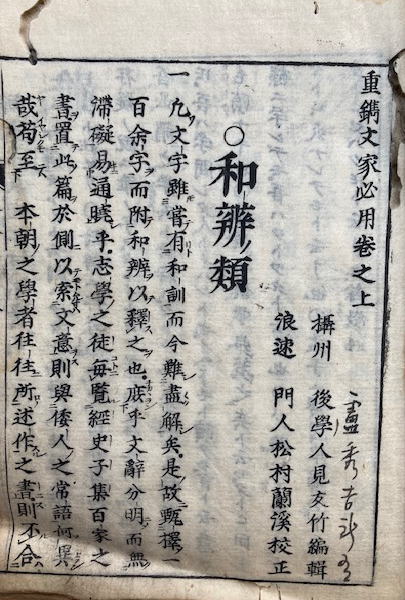 重鐫文家必用卷之上
攝州 後學人見友竹編輯
浪速 門人松村蘭溪校正
○和辨類
一凡文字雖嘗有和訓而今難盡解矣是故甄擇一
百余字而附和辨以釋之也庶乎文辭分明而無
滯礙易通曉乎志學之徒每覽經史子集百家之
書置此篇於側以索文意則與倭人之常語何異
哉苟至 本朝之學者往往所述作之書則不合